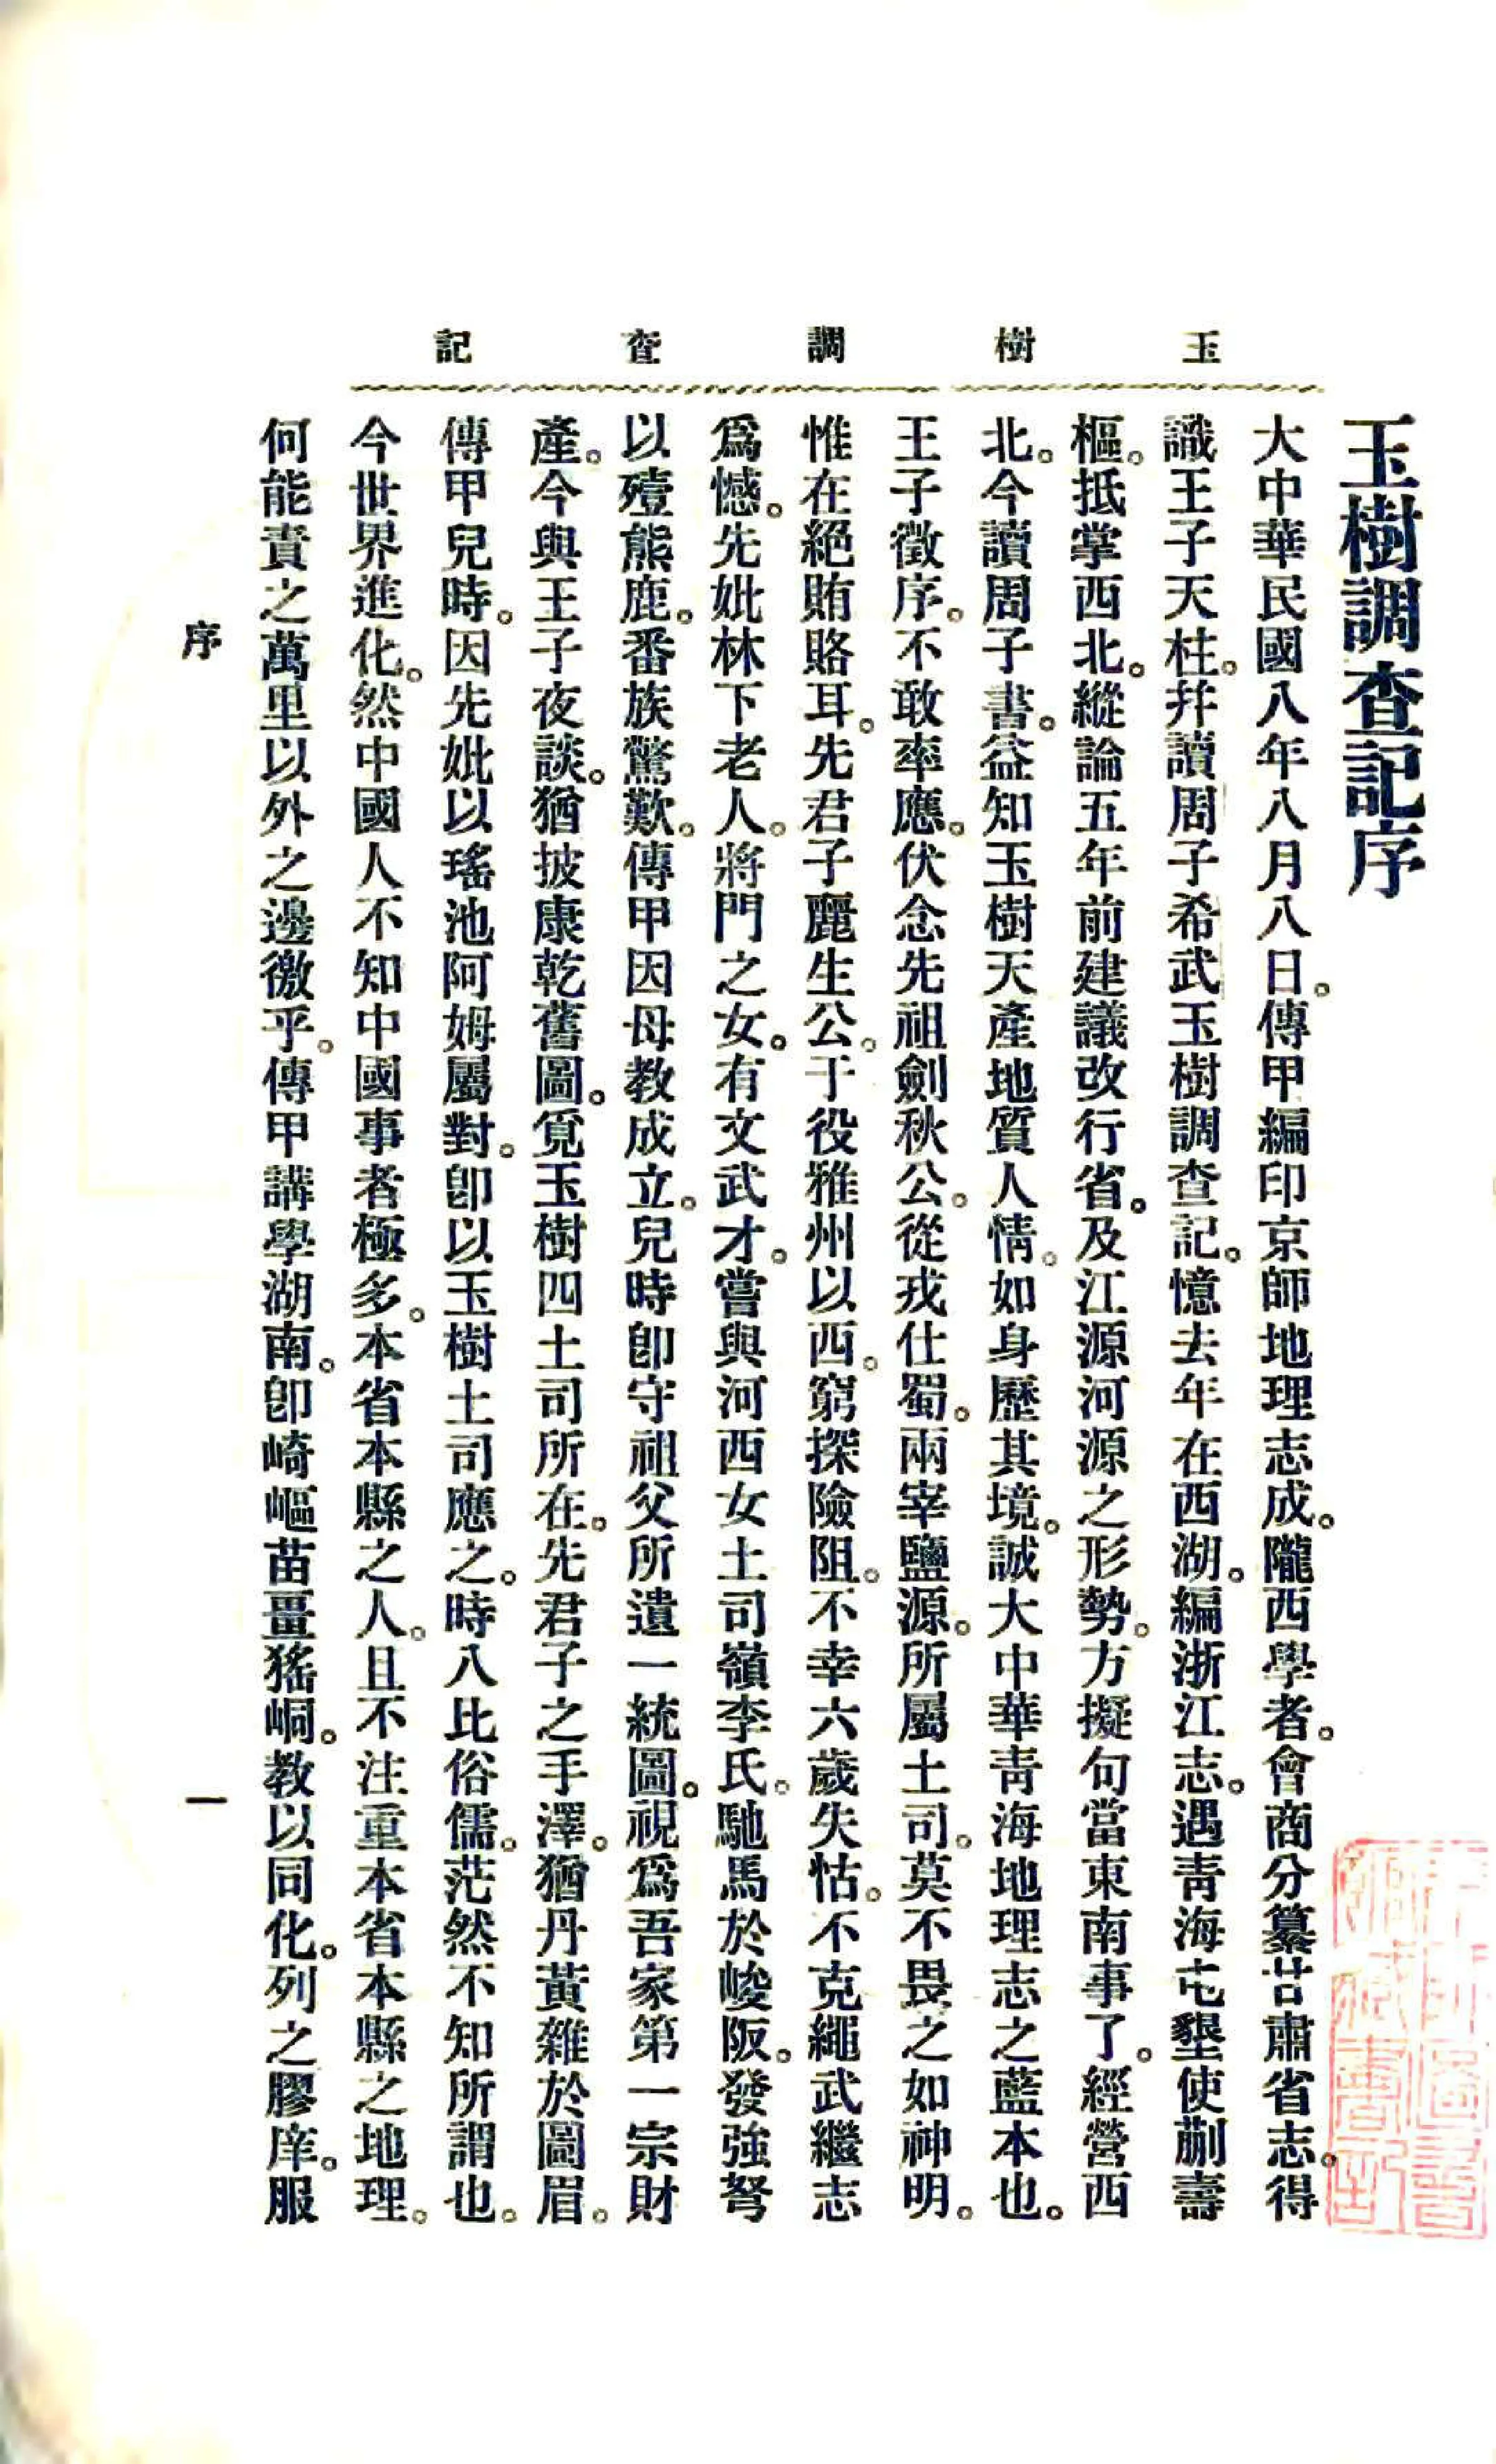 玉樹調查記
玉樹調查記序
大中華民國八年八月八日。傳甲編印京師地理志成。隴西學者。會商分纂甘肅省志。得
識王子天柱。幷讀周子希武玉樹調查記。憶去年在西湖。編浙江志。遇青海屯墾使蒯壽
樞。抵掌西北。縱論五年前建議改行省。及江源河源之形勢。方擬句當東南事了。經營西
北。今讀周子書。益知玉樹天產地質人情。如身歷其境。誠大中華青海地理志之藍本也。
王子徵序。不敢率應。伏念先祖劍秋公。從戎仕蜀。兩宰鹽源。所屬土司。莫不畏之如神明。
惟在絕賄賂耳。先君子麗生公。于役雅州以西。窮探險阻。不幸六歲失怙。不克繩武繼志
爲憾。先妣林下老人。將門之女。有文武才。嘗與河西女土司嶺李氏。馳馬於峻阪。發強弩
以殪熊鹿。番族驚歎。傳甲因母教成立。兒時卽守祖父所遺一統圖。視爲吾家第一宗財
產。今與王子夜談。猶披康乾舊圖。覓玉樹四土司所在。先君子之手澤。猶丹黃雜於圖眉。
傳甲兒時。因先妣以瑤池阿姆屬對。卽以玉樹土司應之。時八比俗儒。茫然不知所謂也。
今世界進化。然中國人不知中國事者極多。本省本縣之人。且不注重本省本縣之地理。
何能責之萬里以外之邊徼乎。傳甲講學湖南。卽崎嶇苗疊猺峒。教以同化。列之膠庠。服
序
一